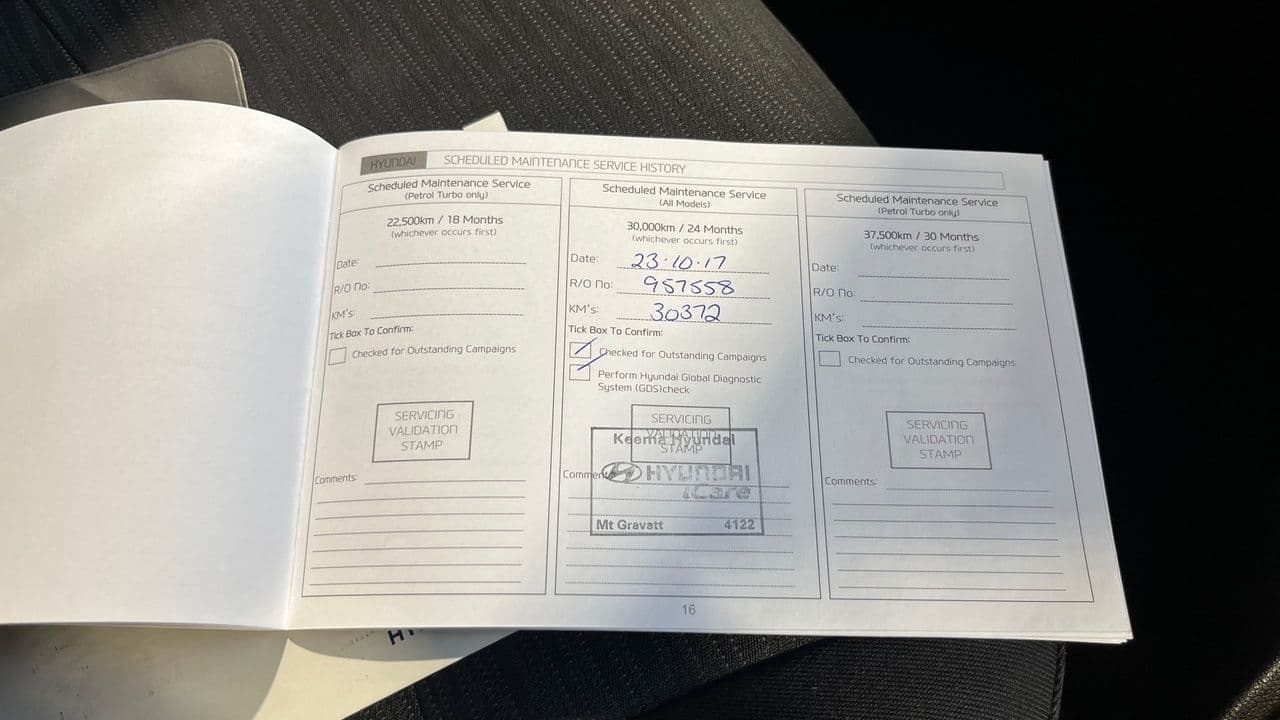 HYUNDAI SCHEDULED MAINTENANCE SERVICE HISTORY
Scheduled Maintenance Service
(Petrol Turbo only)
22,500km / 18 Months
(whichever occurs first)
Date:
R/O No:
KM's:
Tick Box To Confirm:
Checked for Outstanding Campaigns
SERVICING
VALIDATION
STAMP
Comments:
Scheduled Maintenance Service
(All Models)
30,000km / 24 Months
(whichever occurs first)
Date: 23.10.17
R/O No: 957558
KM's: 30372
Tick Box To Confirm:
Checked for Outstanding Campaigns
Perform Hyundai Global Diagnostic
System (GDS)check
SERVICING
VALIDATION
STAMP
Keema Hyundai
Comments:
HYUNDAI
iCare
Mt Gravatt 4122
Scheduled Maintenance Service
(Petrol Turbo only)
37,500km / 30 Months
(whichever occurs first)
Date:
R/O No:
KM's:
Tick Box To Confirm:
Checked for Outstanding Campaigns
SERVICING
VALIDATION
STAMP
Comments:
16